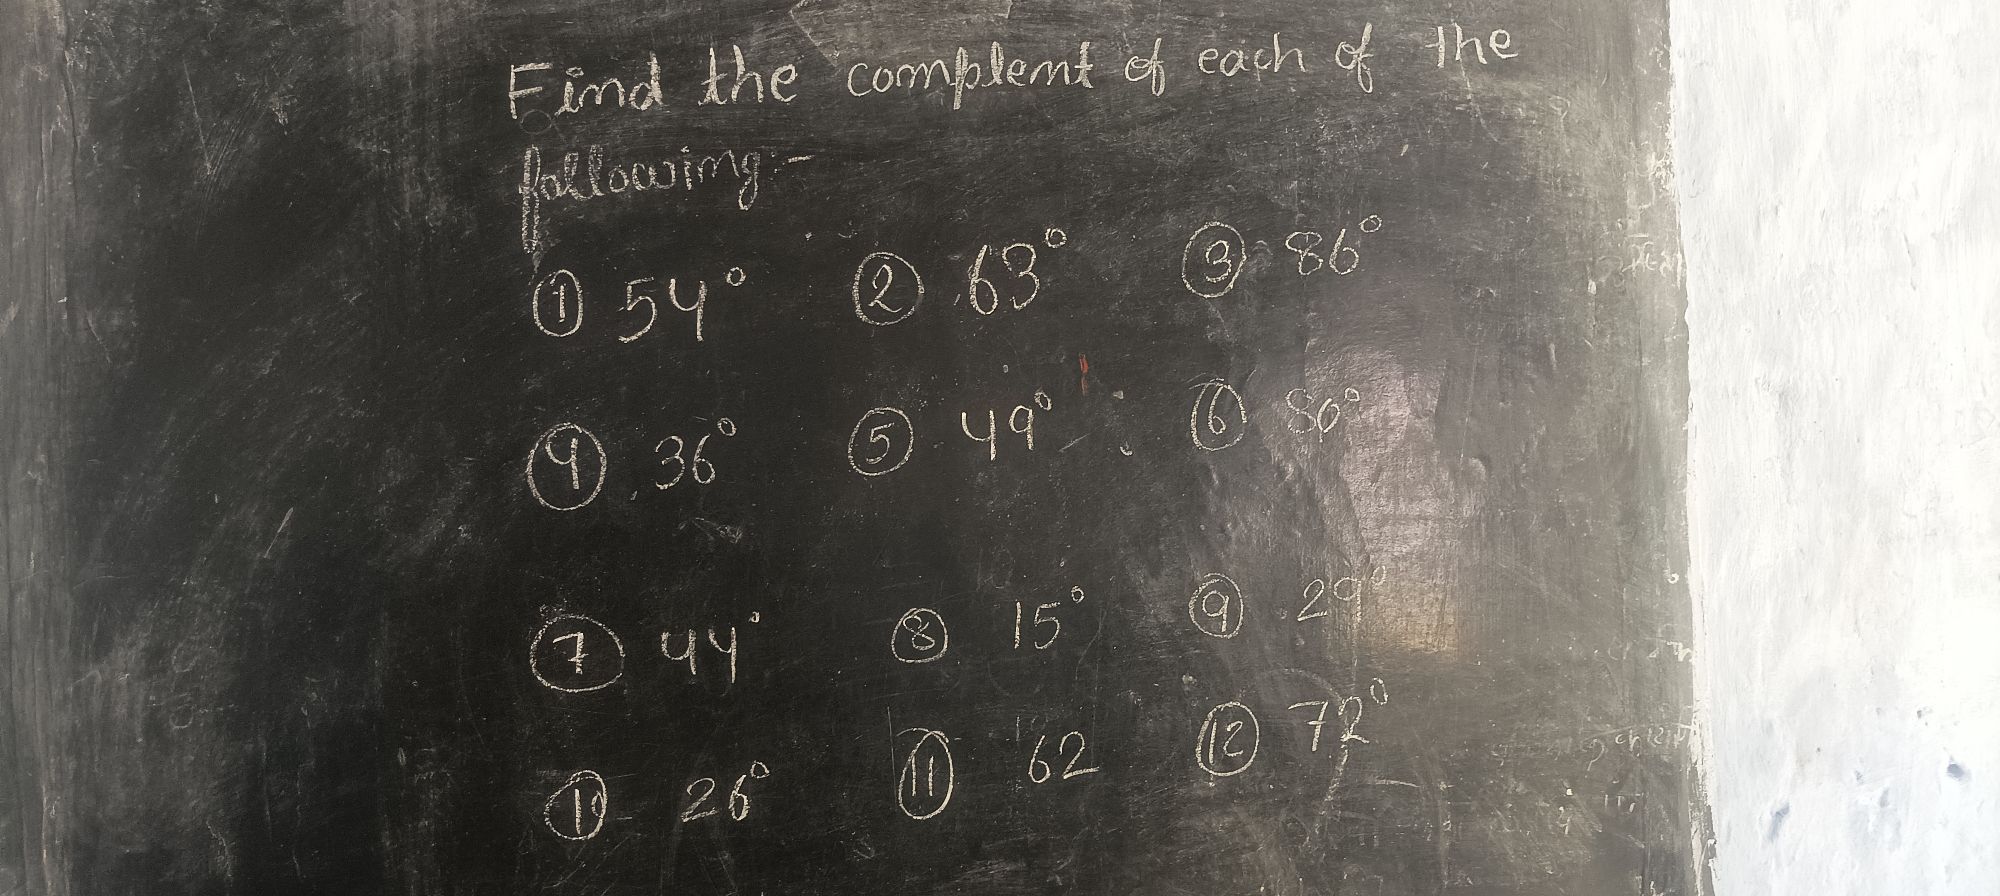 Find the complent of each of the
following:-
① 54° ② 63° ③ 86°
④ 36° ⑤ 49° ⑥ 80°
⑦ 44° ⑧ 15° ⑨ 29°
⑩ 26° ⑪ 62 ⑫ 72°